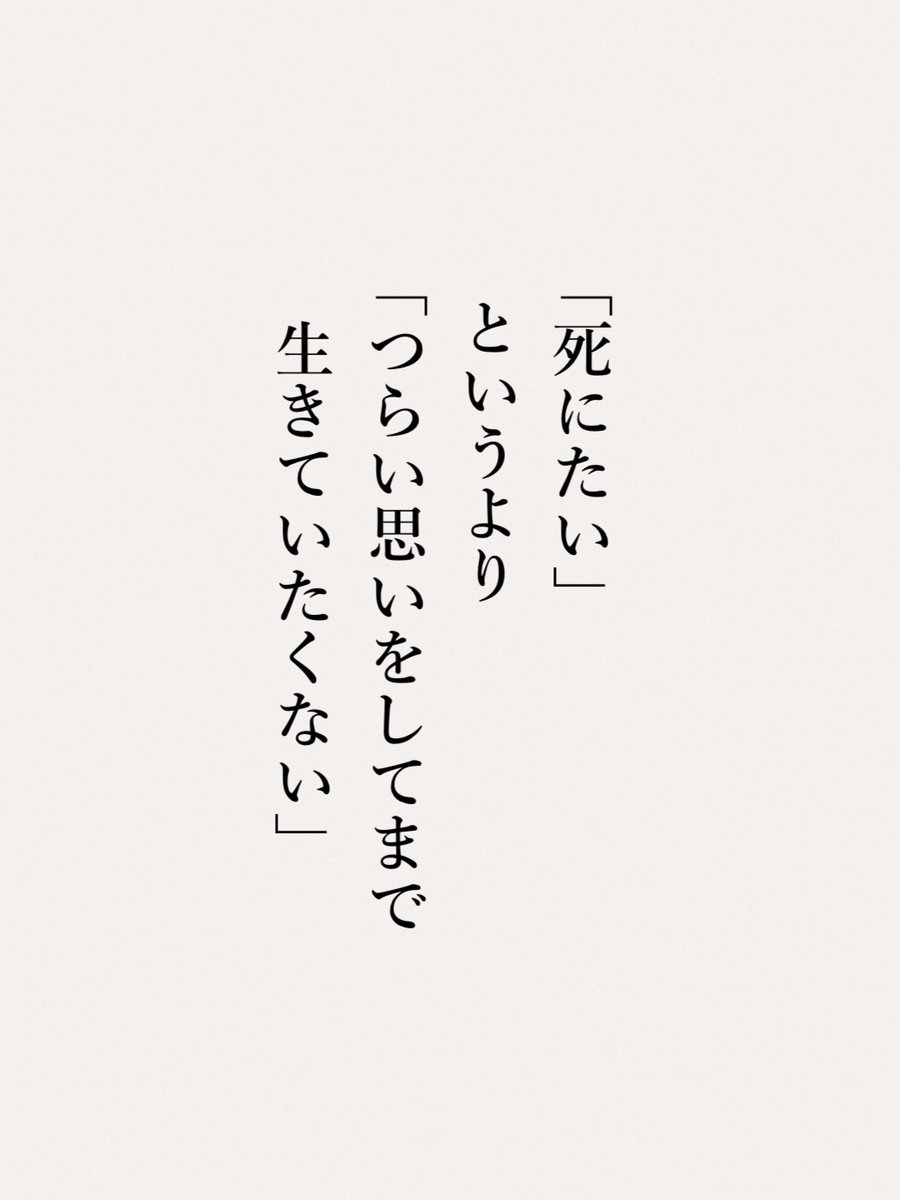 「死にたい」
というより
「つらい思いをしてまで
生きていたくない」